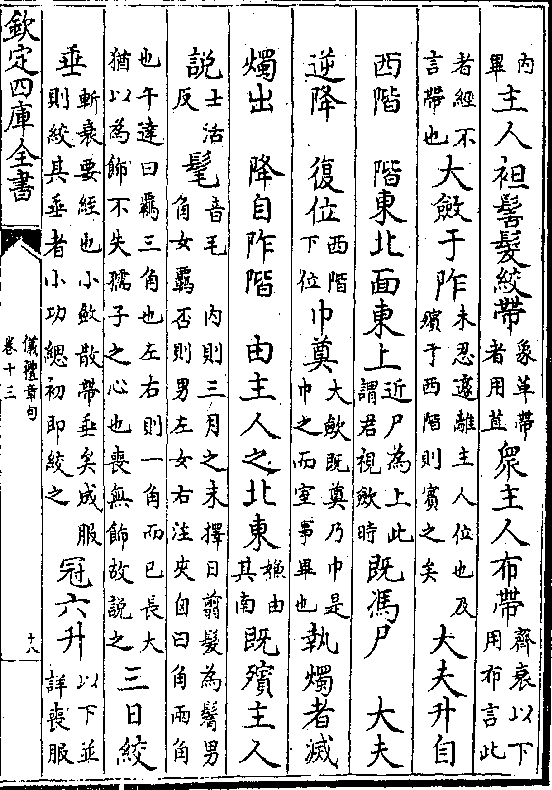 內畢主人袒髺髮絞帶象革帶者用苴眾主人布帶齊衰以下用布言此
者經不言帶也大斂于阼未忍遽離主人位也及殯于西階則賓之矣大夫升自
西階　階東北面東上近尸為上此謂君視斂時既馮尸　大夫
逆降　復位西階下位巾奠大斂既奠乃巾是巾之而室事畢也執燭者滅
燭出　降自阼階　由主人之北東猶由其南既殯主人
說士活反髦音毛　內則三月之末擇日翦髮為鬌男角女羈否則男左女右注夾囟曰角兩角
也午達曰羈三角也左右則一角而已長大猶以為飾不失孺子之心也喪無飾故說之三日絞
垂斬衰要經也小斂散帶垂矣成服則絞其垂者小功緦初即絞之冠六升以下並詳喪服
欽定四庫全書
儀禮章句
卷十三
十八